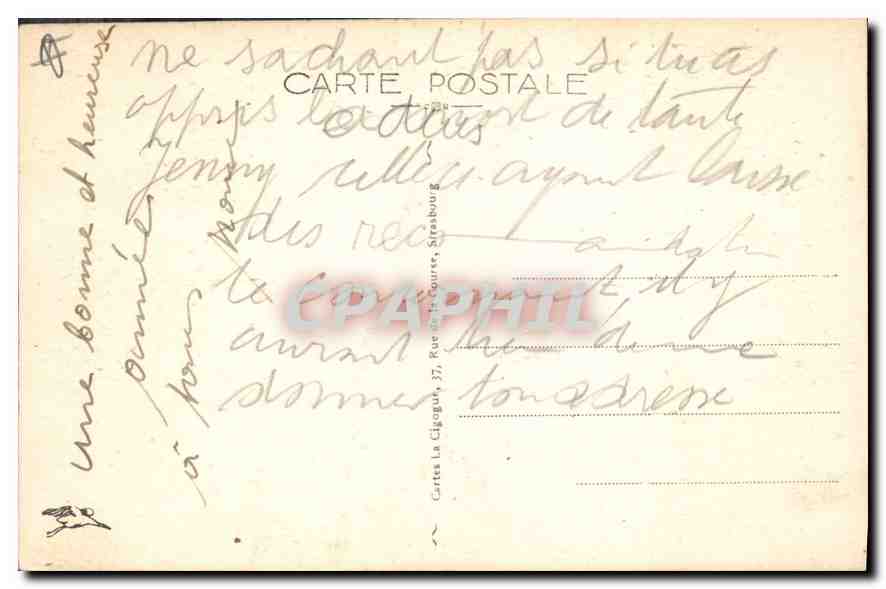 ne sachant pas si tu as
CARTE POSTALE
appris la mort de tante
Jenny celle ci ayant laissé
des
te concernant, il y
aurait lieu de me
donner ton adresse
Une bonne et heureuse
année
à tous
Cartes La Cigogne, 37, Rue de la Course, Strasbourg
CPAPHIL